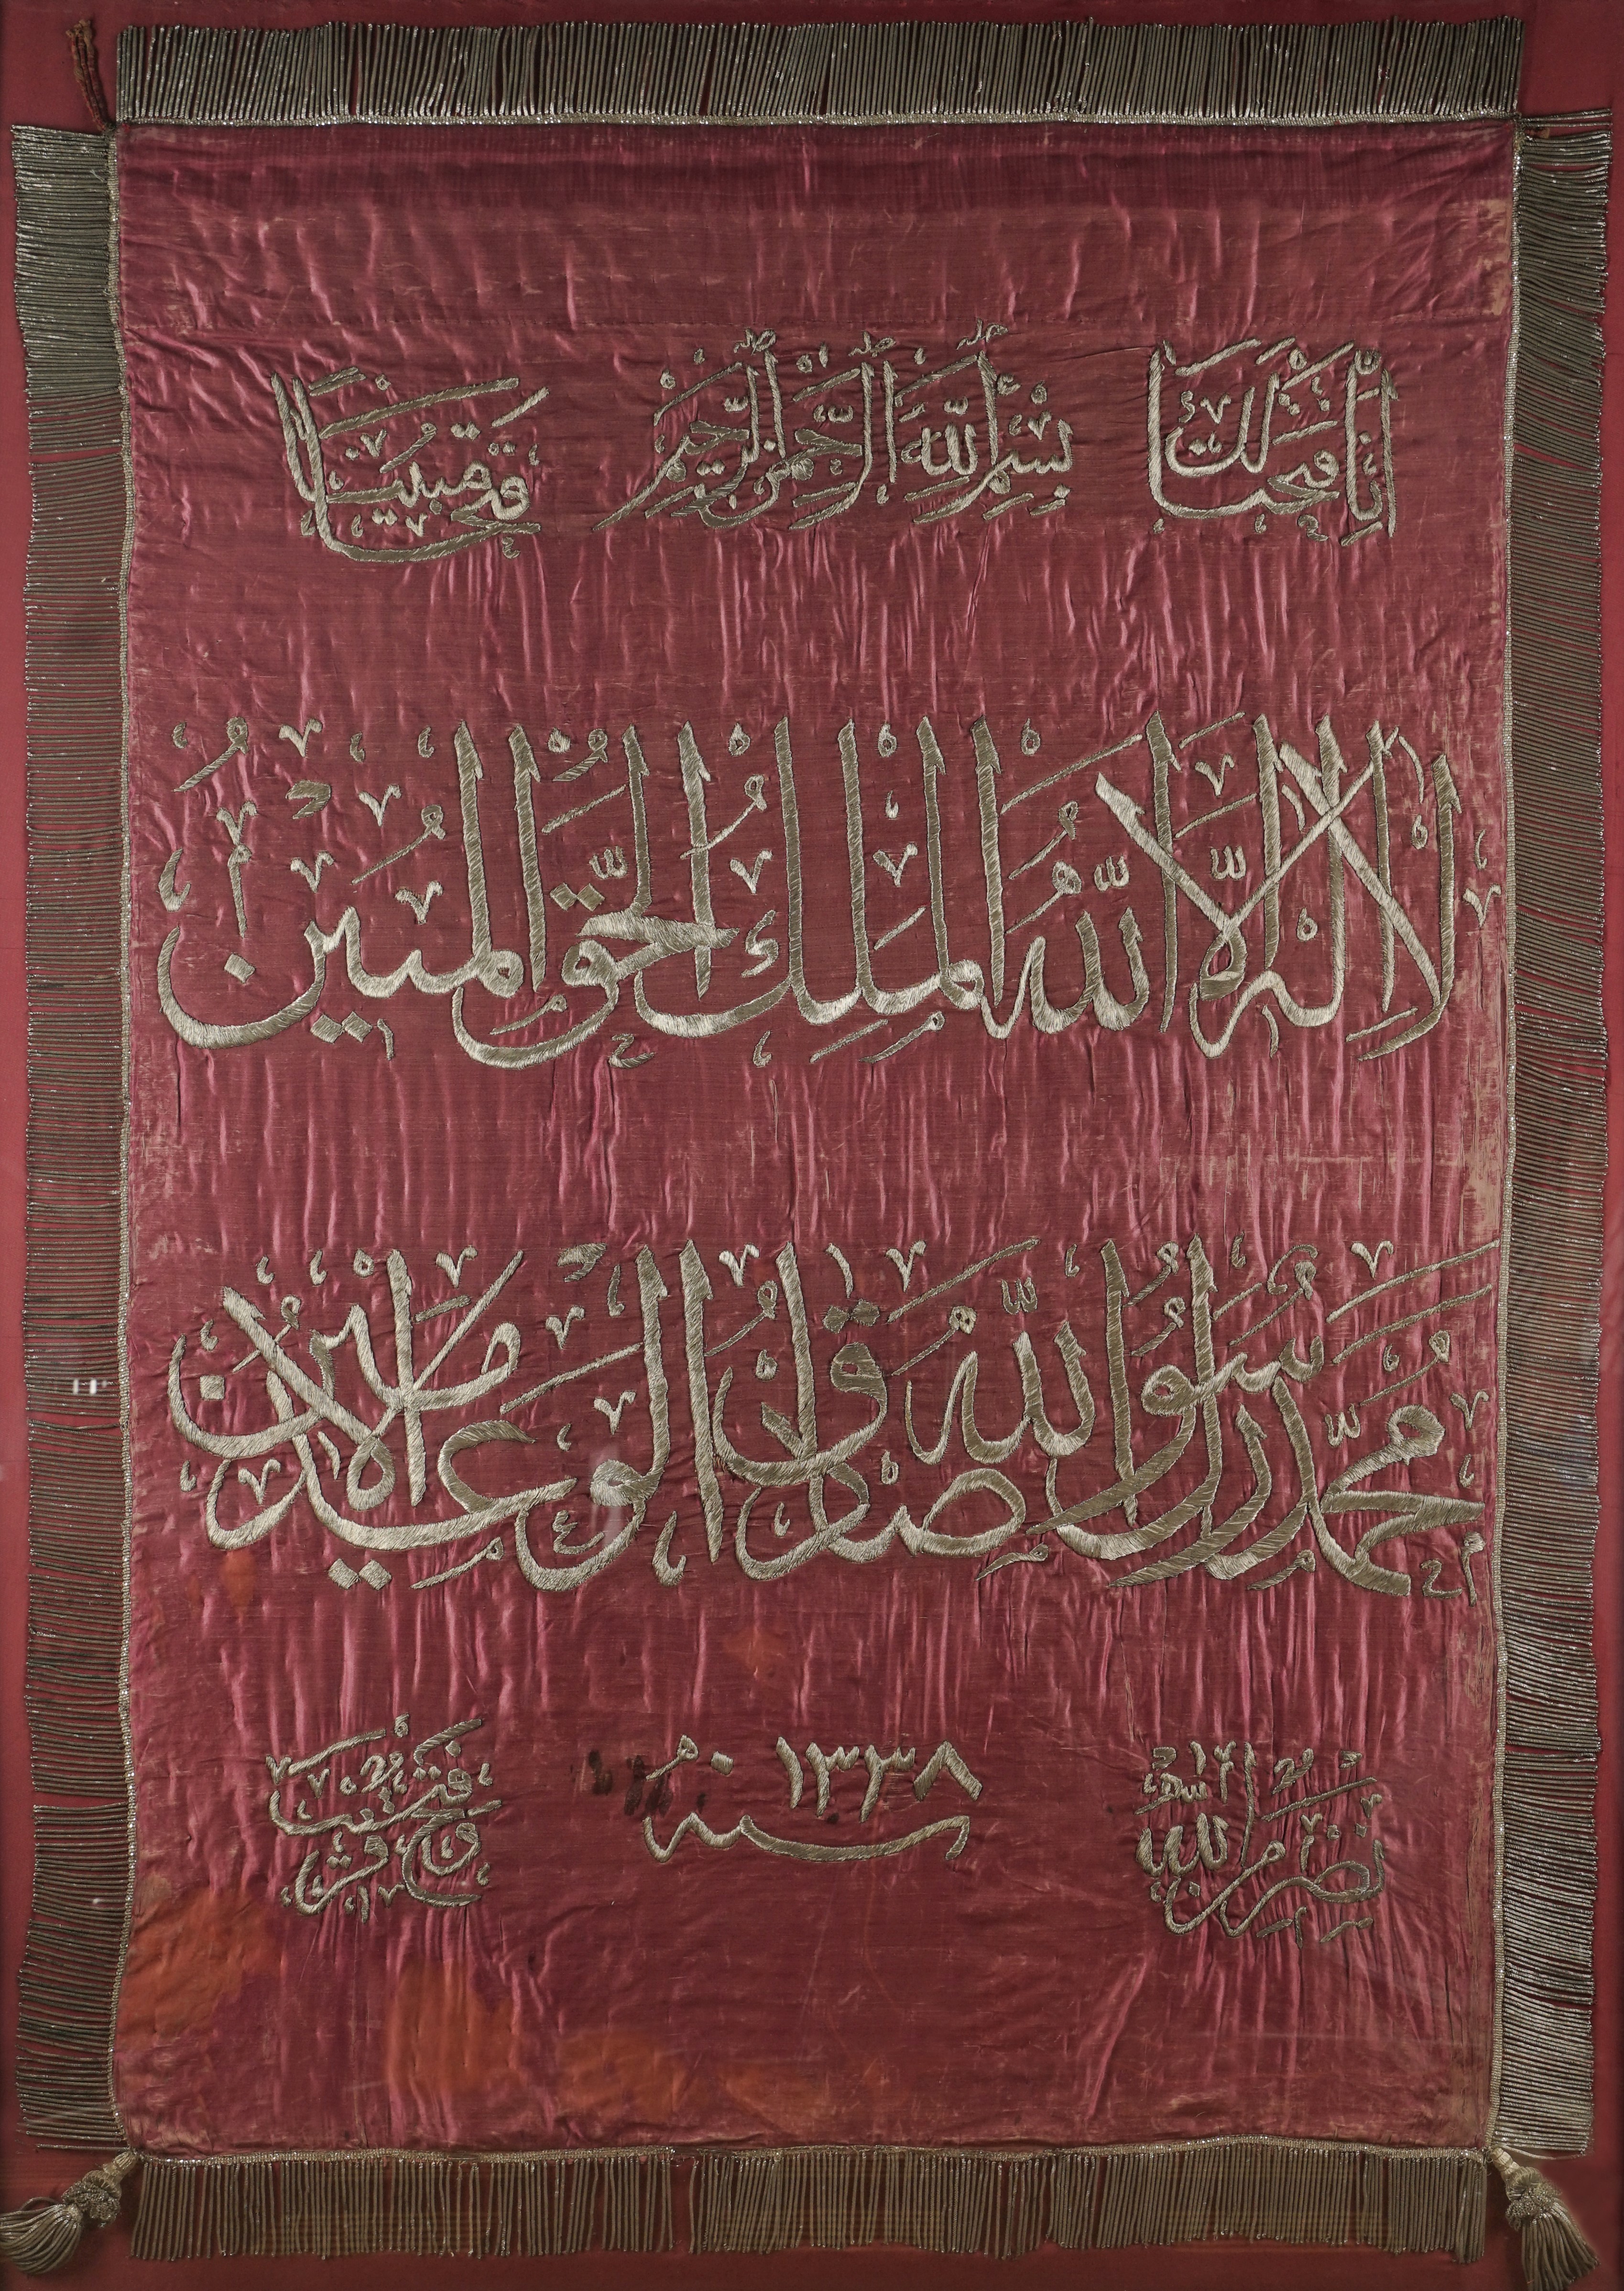 إِنَّا فَتَحْنَا لَكَ بِسْمِ اللَّهِ الرَّحْمَٰنِ الرَّحِيمِ فَتْحًا مُبِينًا
لَا إِلَٰهَ إِلَّا اللَّهُ الْمَلِكُ الْحَقُّ الْمُبِينُ
مُحَمَّدٌ رَسُولُ اللَّهِ صَادِقُ الْوَعْدِ الْأَمِينُ
نَصْرٌ مِنَ اللَّهِ سنه ١٣٣٨ وَفَتْحٌ قَرِيبٌ